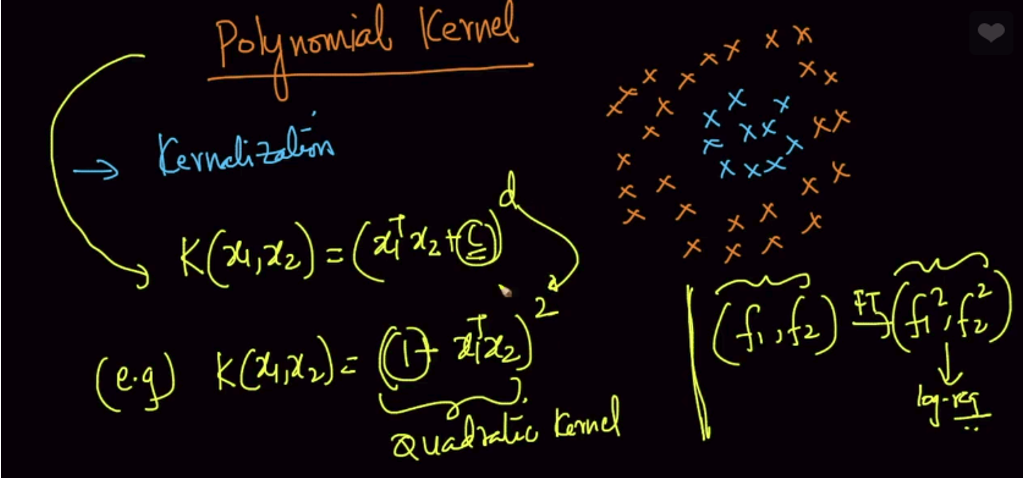 Polynomial Kernel
→ Kernelization
K(x₁,x₂) = (x₁ᵀx₂ + c)ᵈ
(e.g) K(x₁,x₂) = (1 + x₁ᵀx₂)²
Quadratic Kernel
(f₁,f₂) FT→ (f₁², f₂²)
log-reg